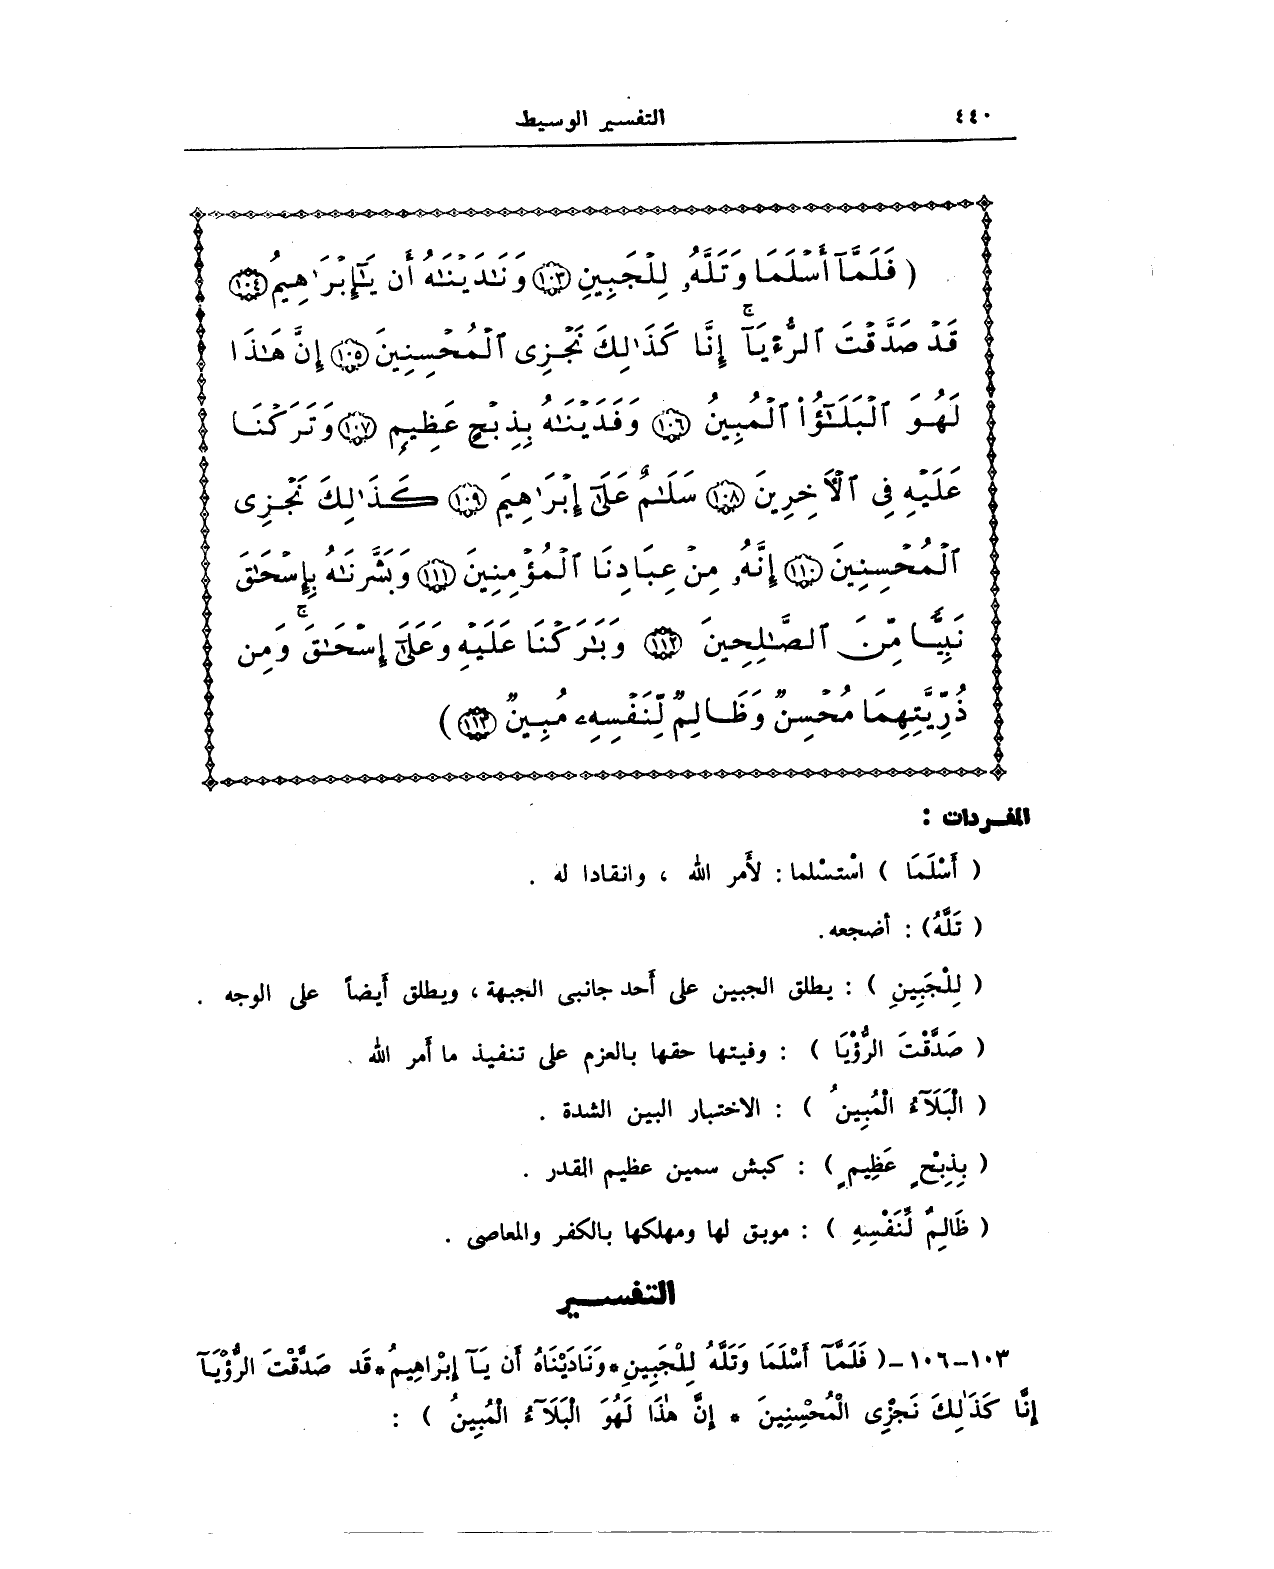 ٤٤٠ التفسير الوسيط
( فَلَمَّآ أَسْلَمَا وَتَلَّهُۥ لِلْجَبِينِ ١٠٣ وَنَـٰدَيْنَـٰهُ أَن يَـٰٓإِبْرَٰهِيمُ ١٠٤
قَدْ صَدَّقْتَ ٱلرُّءْيَآ ۚ إِنَّا كَذَٰلِكَ نَجْزِى ٱلْمُحْسِنِينَ ١٠٥ إِنَّ هَـٰذَا
لَهُوَ ٱلْبَلَـٰٓؤُا۟ ٱلْمُبِينُ ١٠٦ وَفَدَيْنَـٰهُ بِذِبْحٍ عَظِيمٍ ١٠٧ وَتَرَكْنَا
عَلَيْهِ فِى ٱلْأَخِرِينَ ١٠٨ سَلَـٰمٌ عَلَىٰٓ إِبْرَٰهِيمَ ١٠٩ كَذَٰلِكَ نَجْزِى
ٱلْمُحْسِنِينَ ١١٠ إِنَّهُۥ مِنْ عِبَادِنَا ٱلْمُؤْمِنِينَ ١١١ وَبَشَّرْنَـٰهُ بِإِسْحَـٰقَ
نَبِيًّا مِّنَ ٱلصَّـٰلِحِينَ ١١٢ وَبَـٰرَكْنَا عَلَيْهِ وَعَلَىٰٓ إِسْحَـٰقَ ۚ وَمِن
ذُرِّيَّتِهِمَا مُحْسِنٌ وَظَالِمٌ لِّنَفْسِهِۦ مُبِينٌ ١١٣ )
المفردات :
( أَسْلَمَا ) اسْتسْلما : لأَمر الله ، وانقادا له .
( تَلَّهُ ) : أضجعه .
( لِلْجَبِينِ ) : يطلق الجبين على أَحد جانبى الجبهة ، ويطلق أَيضاً على الوجه .
( صَدَّقْتَ الرُّؤْيَا ) : وفيتها حقها بالعزم على تنفيذ ما أَمر الله .
( الْبَلَآءُ الْمُبِينُ ) : الاختبار البين الشدة .
( بِذِبْحٍ عَظِيمٍ ) : كبش سمين عظيم القدر .
( ظَالِمٌ لِّنَفْسِهِ ) : موبق لها ومهلكها بالكفر والمعاصى .
التفسير
١٠٣-١٠٦-( فَلَمَّآ أَسْلَمَا وَتَلَّهُ لِلْجَبِينِ * وَنَادَيْنَاهُ أَن يَآ إِبْرَاهِيمُ * قَد صَدَّقْتَ الرُّؤْيَآ
إِنَّا كَذَٰلِكَ نَجْزِى الْمُحْسِنِينَ * إِنَّ هَٰذَا لَهُوَ الْبَلَآءُ الْمُبِينُ ) :